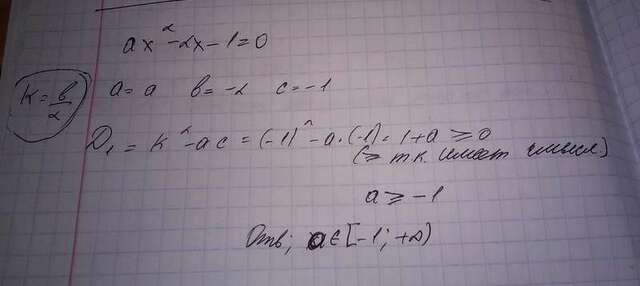 ax²-2x-1=0
K=b/2
a=a b=-2 c=-1
D₁=K²-ac=(-1)²-a·(-1)=1+a≥0
(≥ т.к. имеет смысл)
a≥-1
Отв; a∈[-1;+∞)